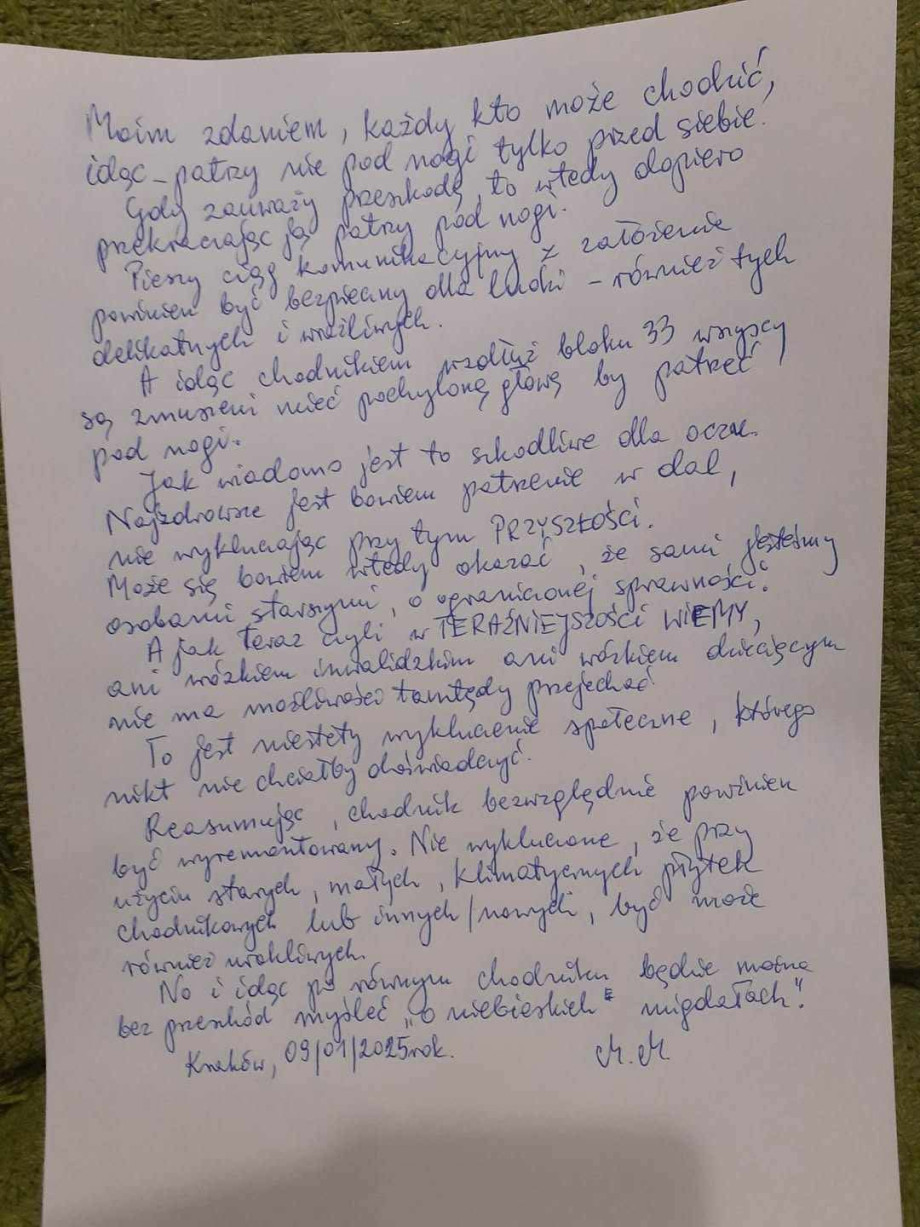 Moim zdaniem, każdy kto może chodzić,
idąc - patrzy nie pod nogi tylko przed siebie.
Gdy zauważy przeszkodę, to wtedy dopiero
przekraczając ją patrzy pod nogi.
Pieszy ciąg komunikacyjny z założenia
powinien być bezpieczny dla ludzi - również tych
delikatnych i wrażliwych.
A idąc chodnikiem wzdłuż bloku 33 wszyscy
są zmuszeni mieć pochyloną głowę by patrzeć
pod nogi.
Jak wiadomo jest to szkodliwe dla oczu.
Najzdrowsze jest bowiem patrzenie w dal,
nie wykluczając przy tym PRZYSZŁOŚCI.
Może się bowiem wtedy okazać, że sami jesteśmy
osobami starszymi, o ograniczonej sprawności.
A jak teraz czyli w TERAŹNIEJSZOŚCI WIEMY,
ani wózkiem inwalidzkim ani wózkiem dziecięcym
nie ma możliwości tamtędy przejechać.
To jest niestety wykluczenie społeczne, którego
nikt nie chciałby doświadczyć.
Reasumując, chodnik bezwzględnie powinien
być wyremontowany. Nie wykluczone, że przy
użyciu starych, małych, klimatycznych płytek
chodnikowych lub innych/nowych, być może
również urokliwych.
No i idąc po równym chodniku będzie można
bez przeszkód myśleć „o niebieskich" migdałach".
Kraków, 09/01/2025rok. M.M